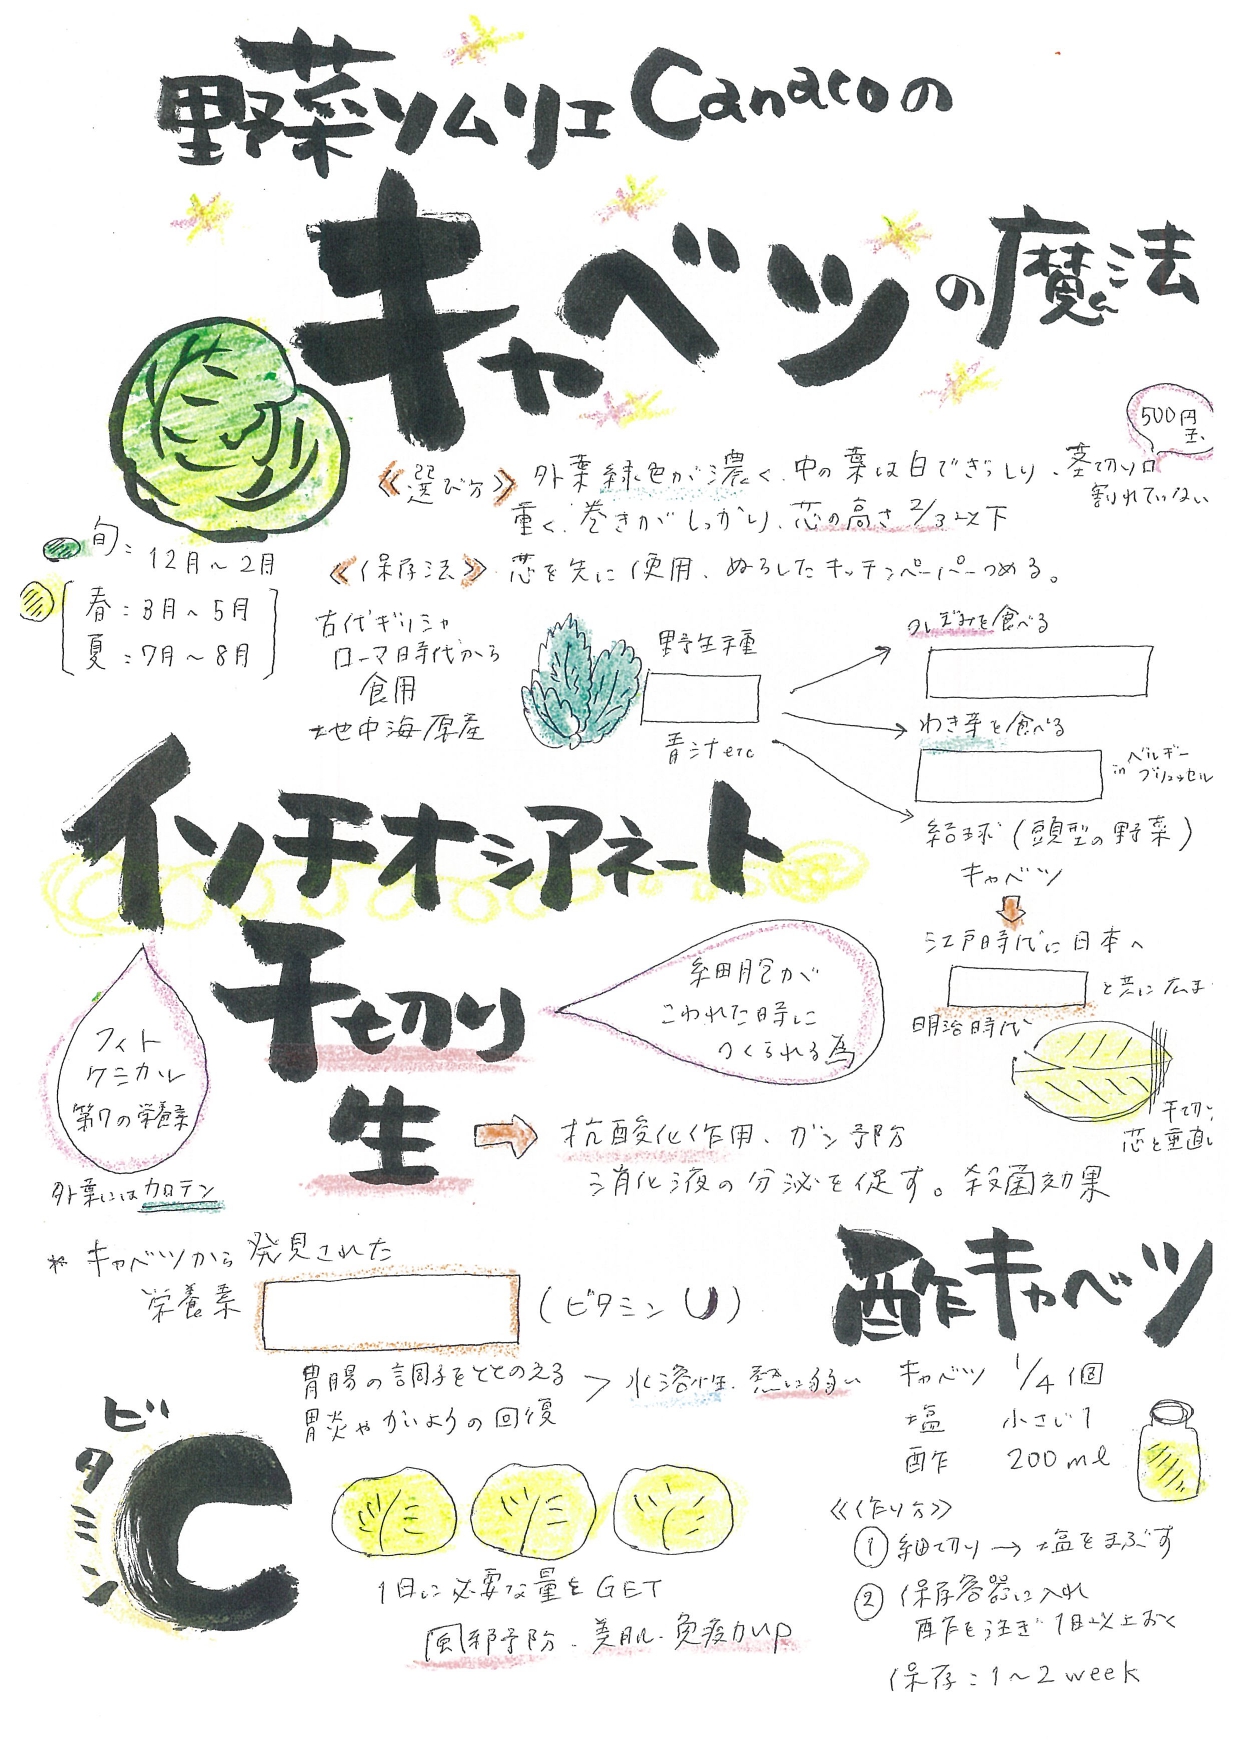 野菜ソムリエCanacoの
キャベツの魔法
500円
玉
《選び方》外葉緑色が濃く、中の葉は白でぎっしり、茎切り口
割れていない
重く、巻きがしっかり、芯の高さ2/3以下
旬:
12月～2月
《保存法》芯を先に使用、ぬらしたキッチンペーパーつめる。
春:3月～5月
夏:7月～8月
古代ギリシャ
ローマ時代から
食用
地中海原産
野生種
青汁etc
つぼみを食べる
わき芽を食べる
in ベルギー
ブリュッセル
結球(頭型の野菜)
キャベツ
江戸時代に日本へ
と共に広ま
明治時代
千切り
芯と垂直
イソチオシアネート
千切り
生
フィト
ケミカル
第7の栄養素
細胞が
こわれた時に
つくられる為
外葉にはカロテン
抗酸化作用、ガン予防
消化液の分泌を促す。殺菌効果
* キャベツから発見された
栄養素
(ビタミンU)
胃腸の調子をととのえる
胃炎やかいようの回復
> 水溶性、熱に弱い
ビタミンC
1日に必要な量をGET
風邪予防、美肌、免疫力up
酢キャベツ
キャベツ 1/4個
塩 小さじ1
酢 200ml
《作り方》
① 細切り→塩をまぶす
② 保存容器に入れ
酢を注ぎ1日以上おく
保存:1～2week